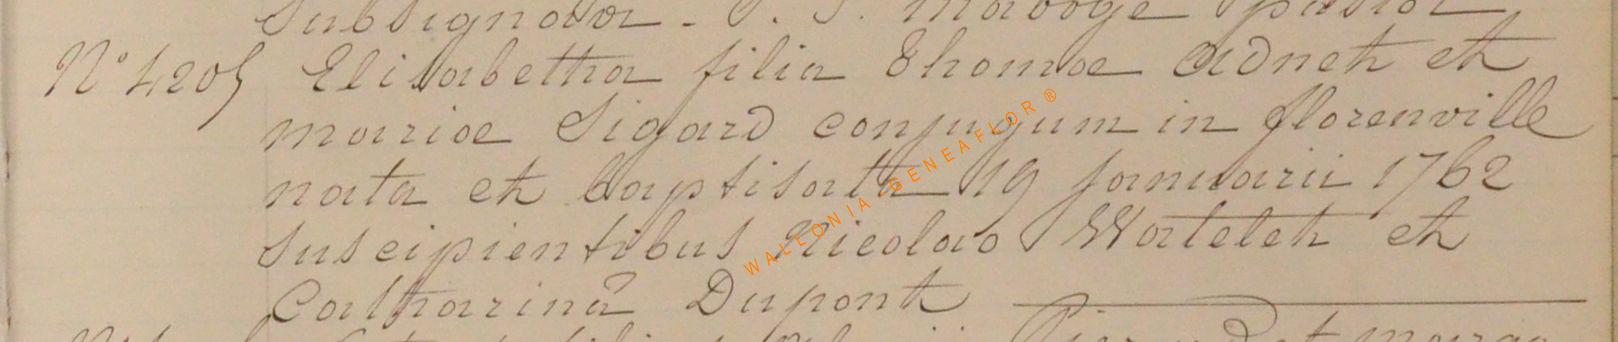 subsignavi - P. J. pastor
N° 4205 Elisabetha filia Thomae Adneh et
mariae Sigard conjugum in florenville
nata et baptisata 19 januarii 1762
suscipientibus Nicolao Watelet et
Catharinâ Dupont
WALLONIA GENEAFLOR ®